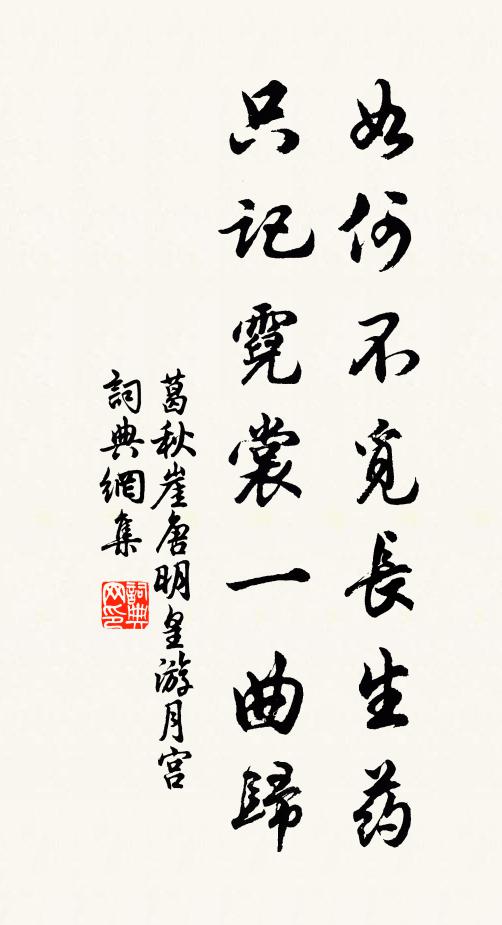 如何不覓長生药
只記霓裳一曲歸
葛秋崖唐明皇游月宫
詞典網集
詞典网印